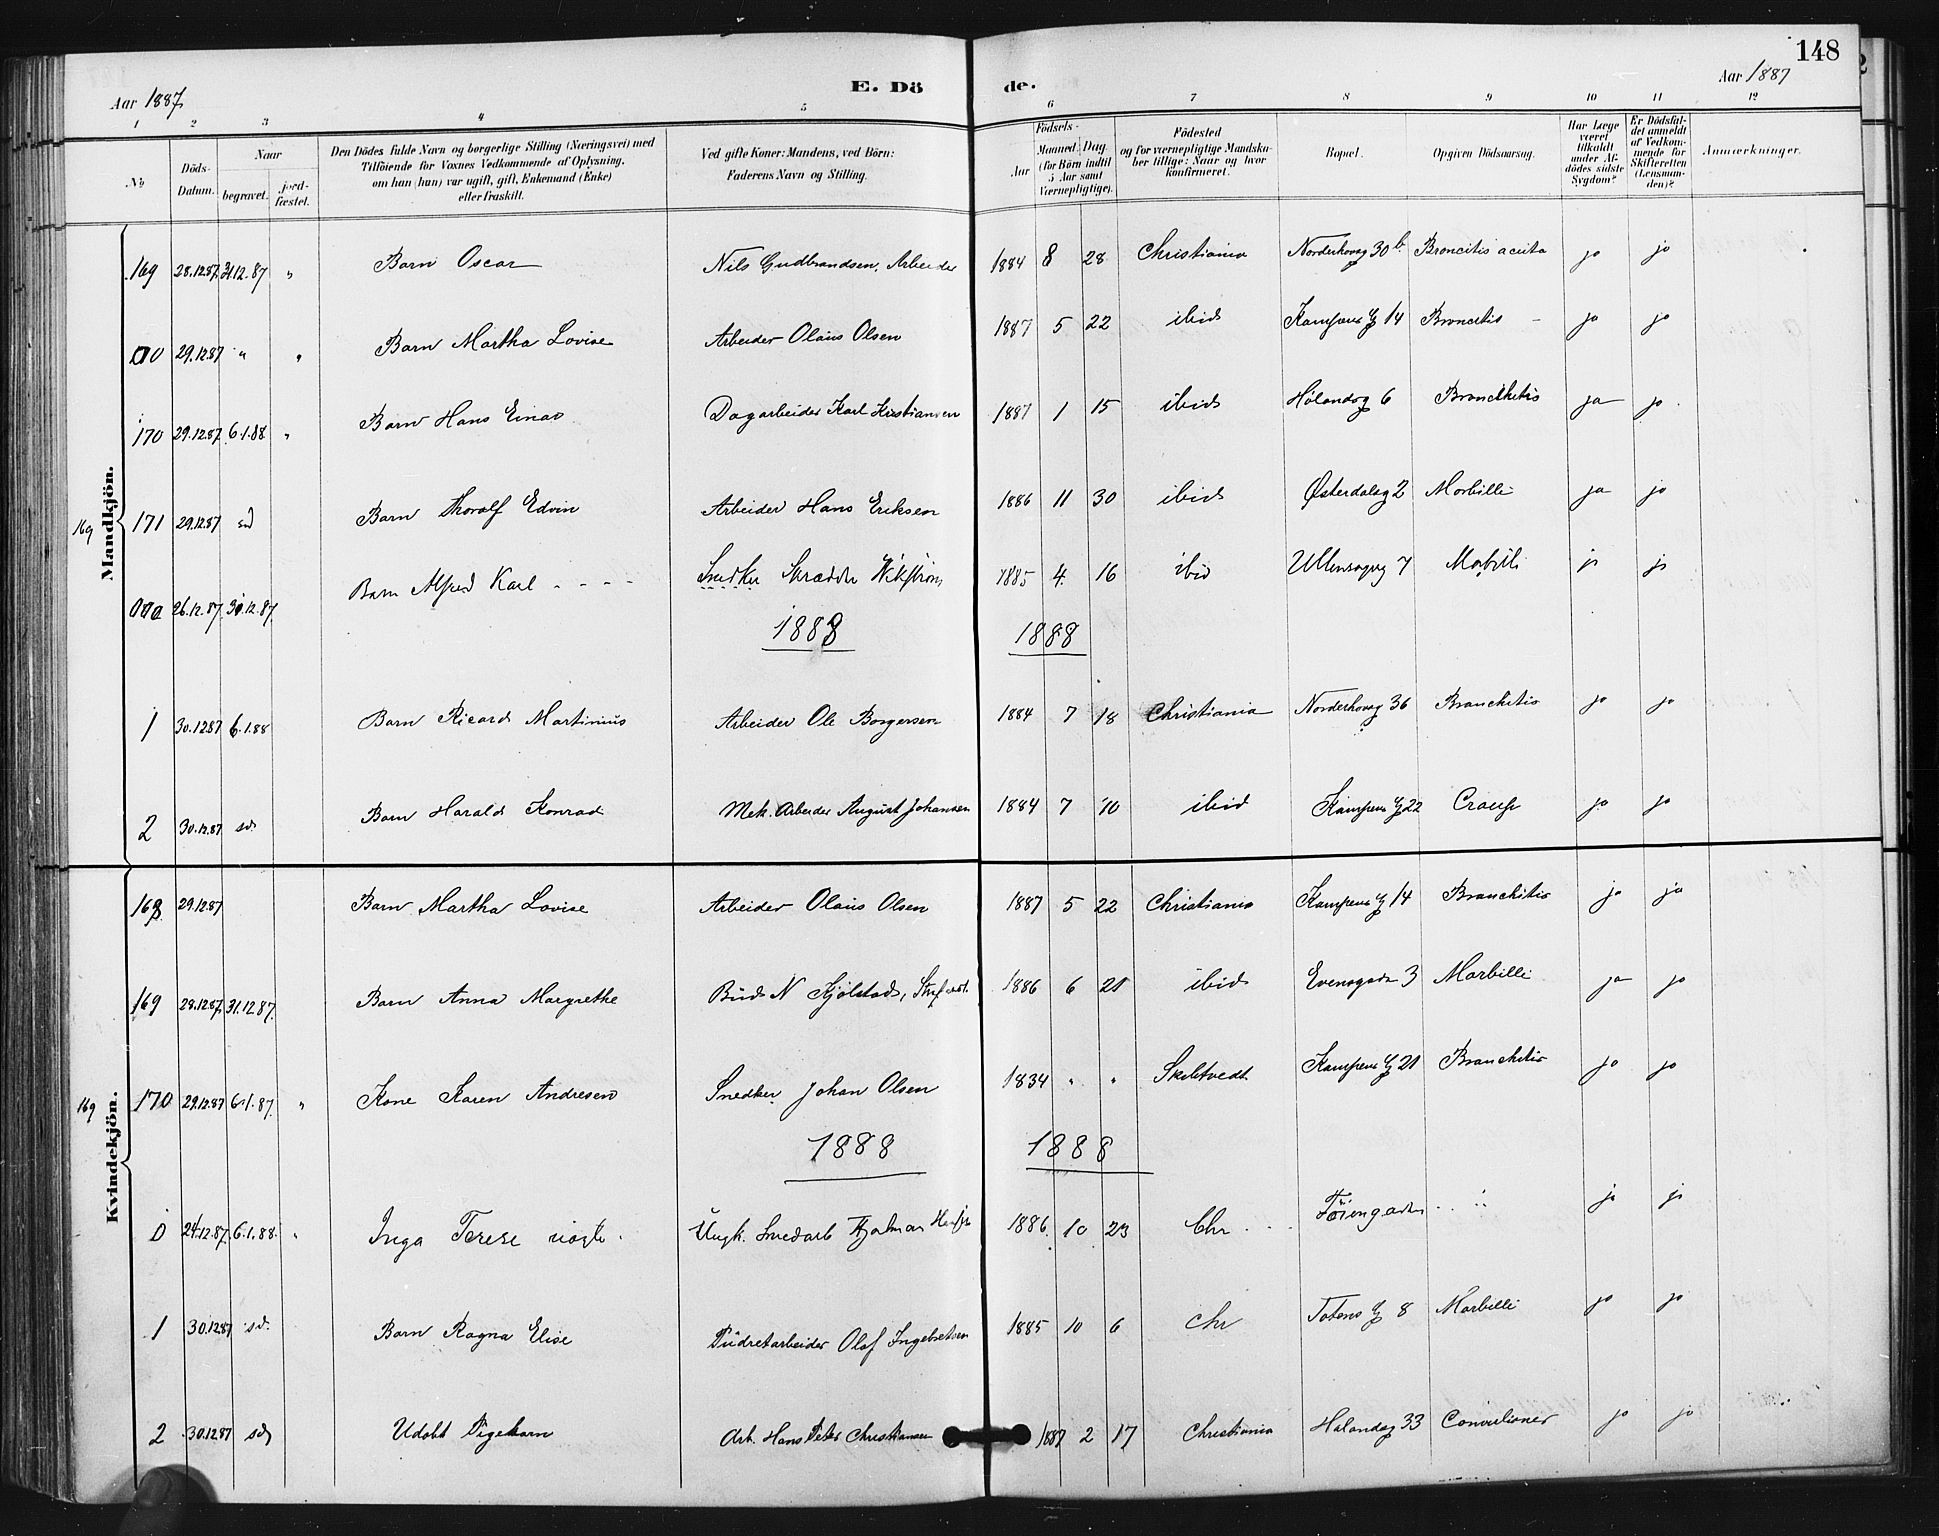 148
Aar 1887 E. Dö de. Aar 1887
1 2 3 4 5 6 7 8 9 10 11 12
No Döds-Datum. Naar begravet. jord-fæstet. Den Dödes fulde Navn og borgerlige Stilling (Næringsvei) med Tilföiende for Voxnes Vedkommende af Oplysning, om han (hun) var ugift, gift, Enkemand (Enke) eller fraskilt. Ved gifte Koner: Mandens, ved Börn: Faderens Navn og Stilling. Födsels- Aar Maaned. Dag. (for Börn indtil 5 Aar samt Værnepligtige). Födested og for værnepligtige Mandskaber tillige: Naar og hvor konfirmeret. Bopæl. Opgiven Dödsaarsag. Har Læge været tilkaldt under Afdödes sidste Sygdom? Er Dödsfaldet anmeldt af Vedkommende for Skifteretten (Lensmanden)? Anmærkninger.
Mandkjön.
169 28.12.87 31.12.87 " Barn Oscar Nils Gudbrandsen, Arbeider 1884 8 28 Christiania Norderhovsg 30 b. Broncitis acuta ja ja
29.12.87 " " Barn Martha Lovise Arbeider Olaus Olsen 1887 5 22 ibid Kampens G 14 Broncitis - ja ja
170 29.12.87 6.1.88 " Barn Hans Einar Dagarbeider Karl Kristiansen 1887 1 15 ibid Hölandsg 6 Bronchitis ja ja
169 171 29.12.87 sd Barn Thoralf Edvin Arbeider Hans Eriksen 1886 11 30 ibid Østerdalsg 2 Morbilli ja ja
26.12.87 30.12.87 Barn Alfred Karl - - - - Snedker Skrædder Wikström 1885 4 16 ibid Ullensagsg 7 Morbili ja ja
1888 1888
1 30.12.87 6.1.88 Barn Ricard Martinius Arbeider Ole Borgersen 1884 7 18 Christiania Norderhovsg 36 Bronchitis ja ja
2 30.12.87 sd. Barn Harald Konrad Mek. Arbeider August Johansen 1884 7 10 ibid Kampens G 22 Croup ja ja
Kvindekjön.
168 29.12.87 Barn Martha Lovise Arbeider Olaus Olsen 1887 5 22 Christiania Kampens G 14 Bronchitis ja ja
169 28.12.87 31.12.87. Barn Anna Margrethe Bud N Kjölstad, 1886 6 21 ibid Evensgade 3 Morbilli ja ja
169 170 29.12.87 6.1.87. " Kone Karen Andresen Snedker Johan Olsen 1834 " " Skibtvedt Kampens G 21 Bronchitis ja ja
1888 1888
0 24.12.87. 6.1.88. " Inga Terese uægte. Ungk. Smedarb Hjalmar 1886. 10 23 Chr - - - Töiengaden ja ja
1 30.12.87 sd. Barn Ragna Elise Pudretarbeider Olaf Ingebretsen 1885 10 6 Chr Totens G 8 Morbilli ja ja
2 30.12.87 sd Udöbt Pigebarn Arb. Hans Peter Christiansen 1887 2 17 Christiania Hölandsg 33 Convulsioner ja ja